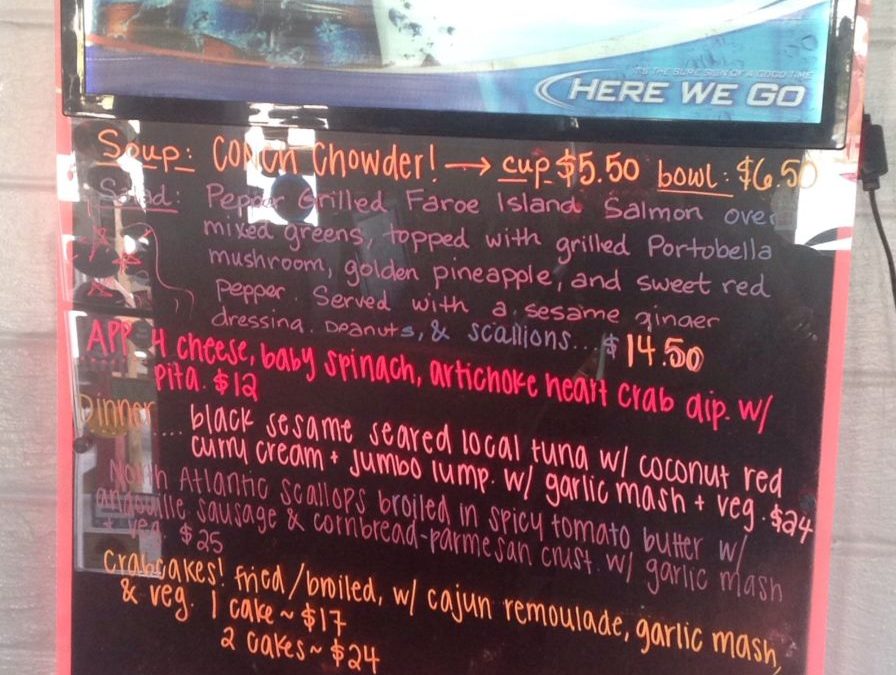 IT'S THE SURE SIGN OF A GOOD TIME
HERE WE GO
Soup: Conch Chowder! → cup $5.50 bowl: $6.50
Salad: Pepper Grilled Faroe Island Salmon over
mixed greens, topped with grilled Portobella
mushroom, golden pineapple, and sweet red
pepper. Served with a sesame ginger
dressing. Peanuts, & scallions... $14.50
APP. 4 cheese, baby spinach, artichoke heart crab dip. w/
pita. $12
Dinner.... black sesame seared local tuna w/ coconut red
curry cream + jumbo lump. w/ garlic mash + veg. $24
North Atlantic scallops broiled in spicy tomato butter w/
andouille sausage & cornbread-parmesan crust. w/ garlic mash
+ veg. $25
Crabcakes! fried/broiled, w/ cajun remoulade, garlic mash,
& veg. 1 cake ~ $17
2 cakes ~ $24